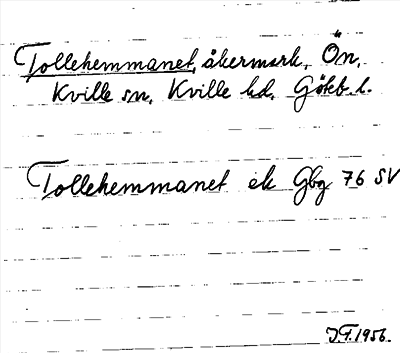 Tollehemmanet, åkermark, Ön,
Kville sn, Kville hd, Göteb l.
Tollehemmanet ek Gbg 76 SV
J.F. 1956.